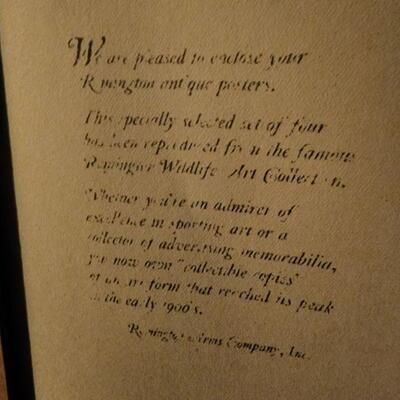 We are pleased to enclose your
Remington antique posters.
This specially selected set of four
has been reproduced from the famous
Remington Wildlife Art Collection.
Whether you're an admirer of
excellence in sporting art or a
collector of advertising memorabilia,
you now own "collectible copies"
of an art form that reached its peak
in the early 1900's.
Remington Arms Company, Inc.